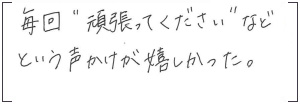 毎回“頑張ってください”など
という声かけが嬉しかった。